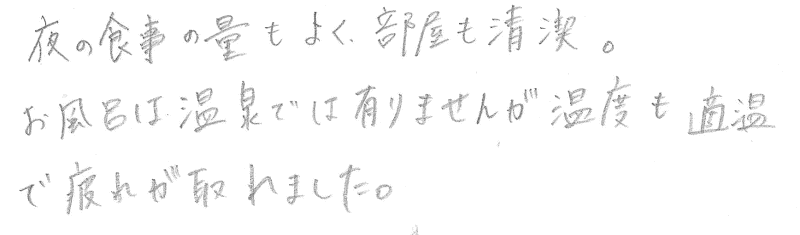 夜の食事の量もよく、部屋も清潔。
お風呂は温泉では有りませんが温度も適温
で疲れが取れました。